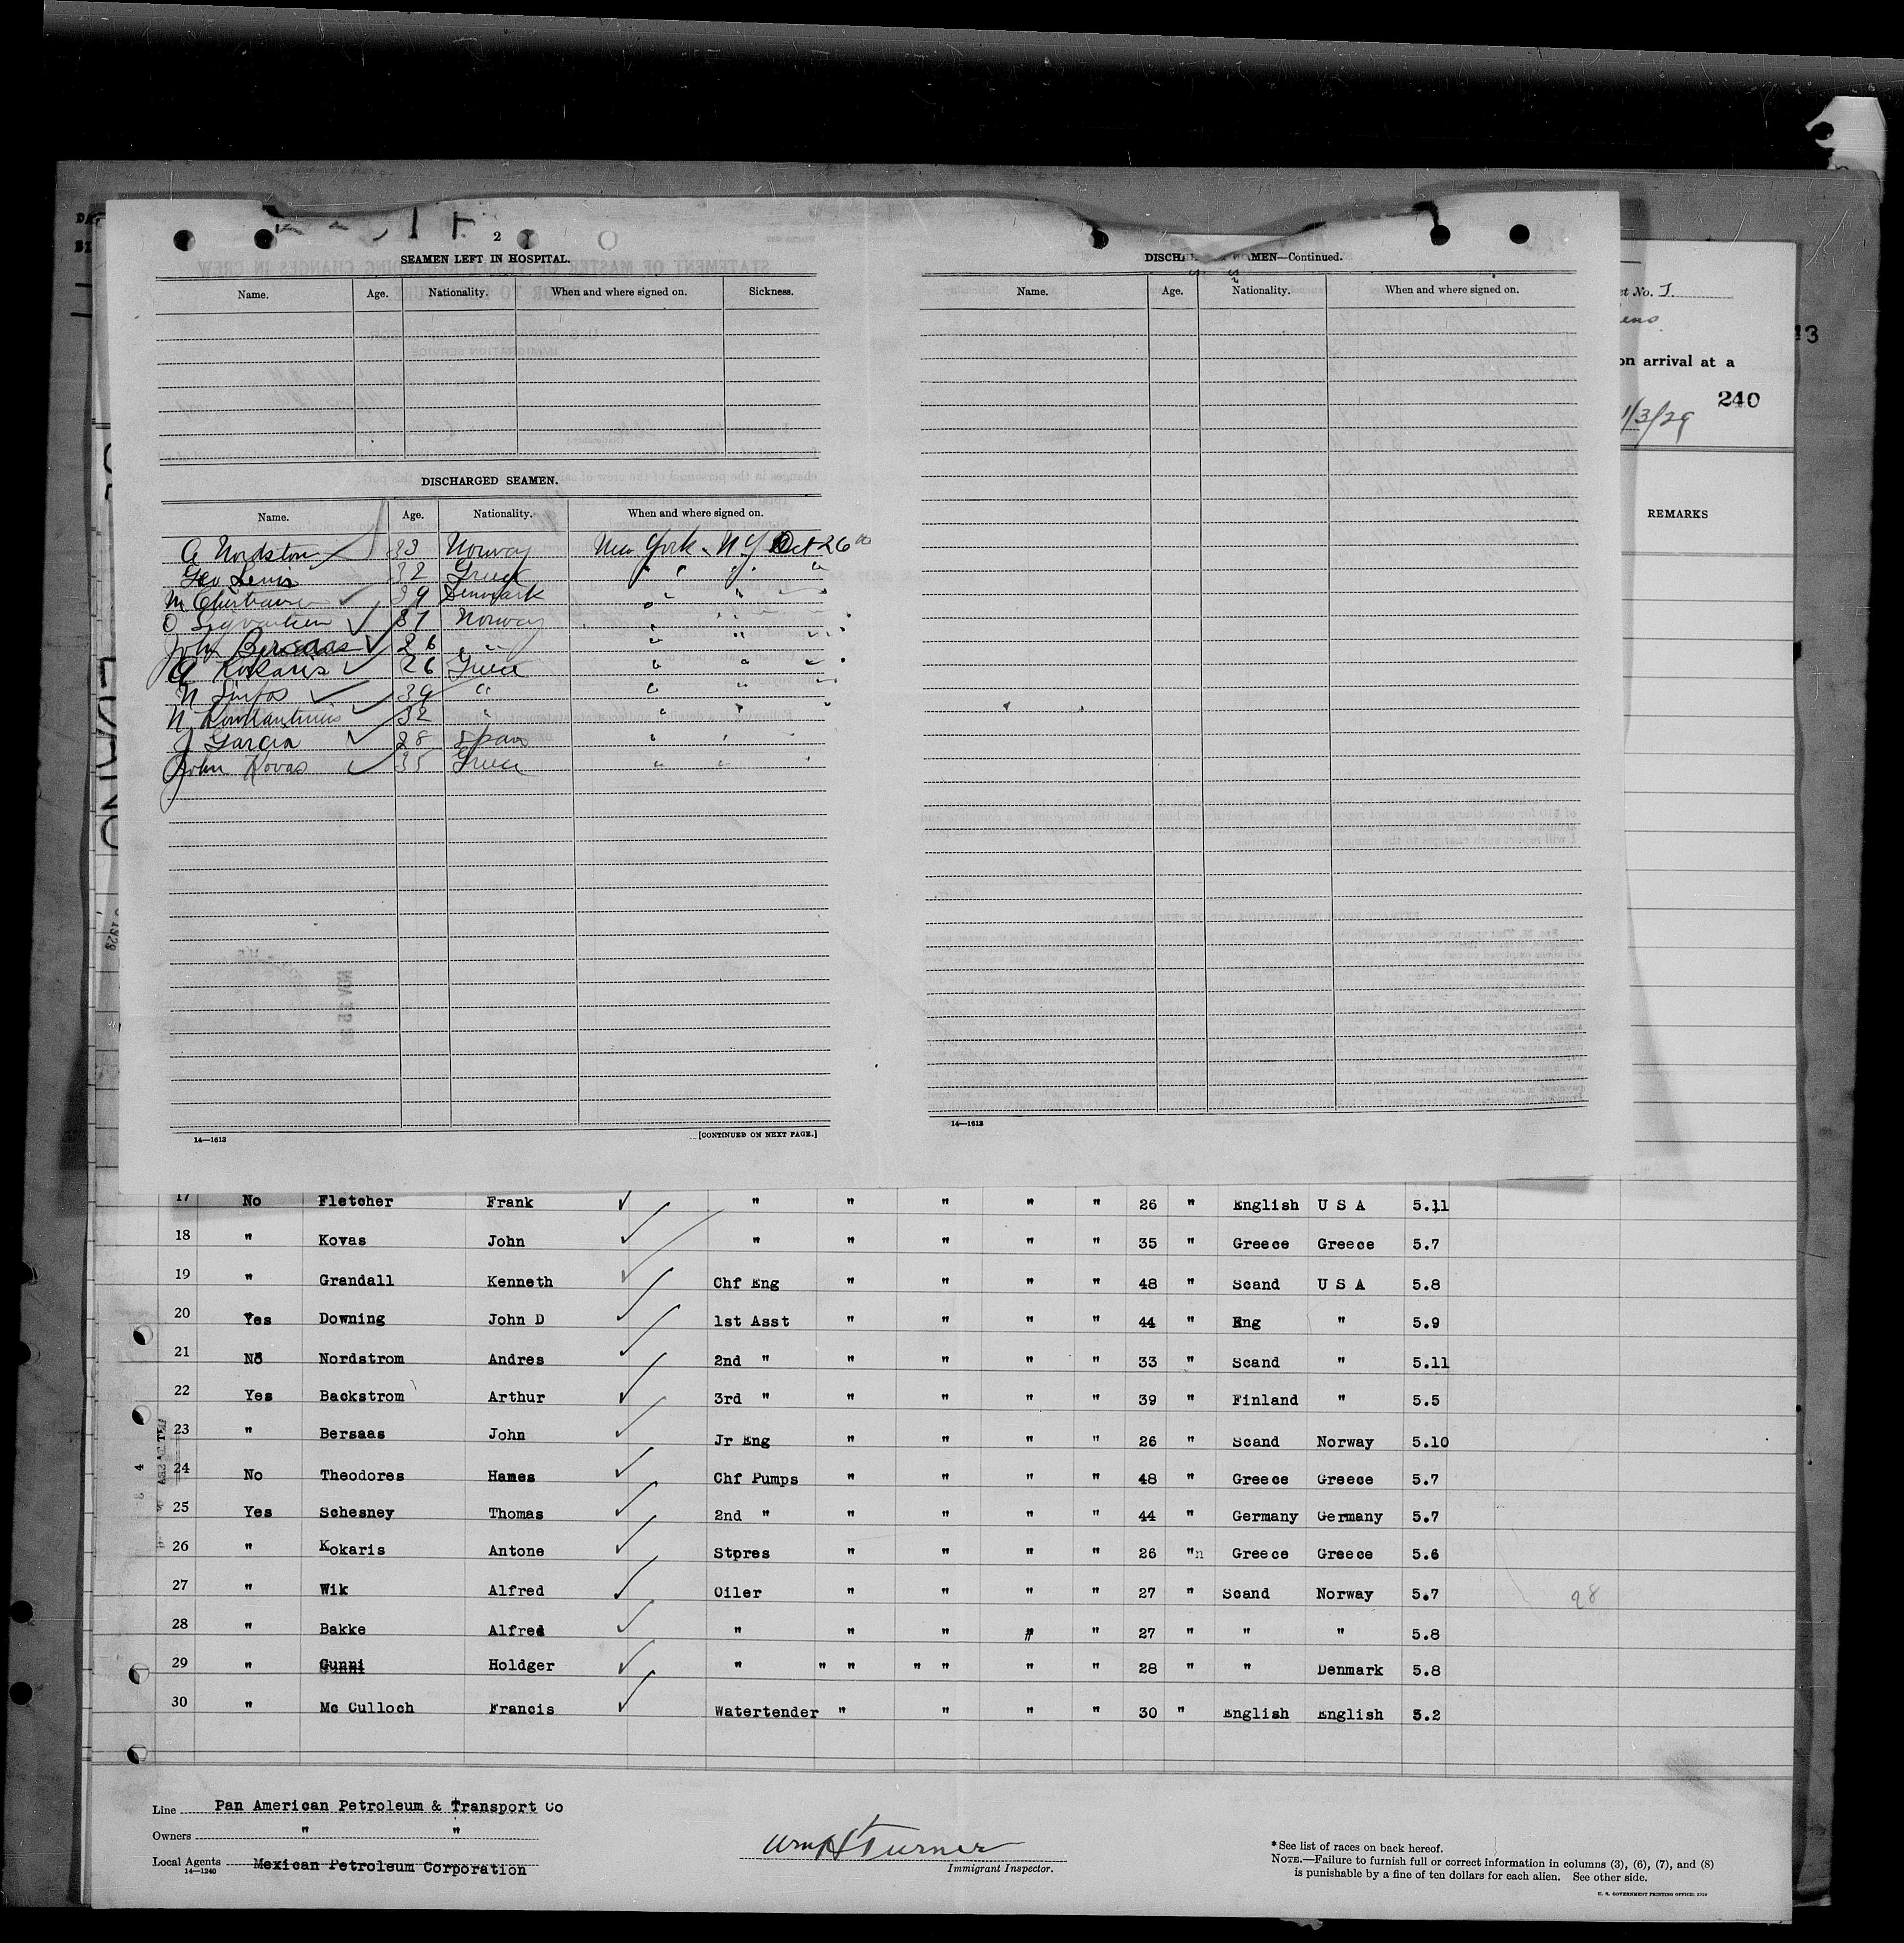 2
SEAMEN LEFT IN HOSPITAL.
Name. Age. Nationality. When and where signed on. Sickness.
DISCHARGED SEAMEN.
Name. Age. Nationality. When and where signed on.
A Nordstom 33 Norway New York N Y Oct 26th
Geo Lewis 32 Greece " " " "
M 39 Denmark " " "
O 37 Norway " " "
John Bersaas 26 " " " "
A Kokaris 26 Greece " " "
N 39 " " " "
N 32 " " " "
J Garcia 28 Spain " " "
John Kovas 35 Greece " " "
14—1613
[CONTINUED ON NEXT PAGE.]
MEN—Continued.
Name. Age. Nationality. When and where signed on.
14—1613
No.
on arrival at a
240
/3/29
REMARKS
17 No Fletcher Frank " " " " " 26 " English U S A 5.11
18 " Kovas John " " " " " 35 " Greece Greece 5.7
19 " Grandall Kenneth Chf Eng " " " " 48 " Scand U S A 5.8
20 Yes Downing John D 1st Asst " " " " 44 " Eng " 5.9
21 No Nordstrom Andres 2nd " " " " " 33 " Scand " 5.11
22 Yes Backstrom Arthur 3rd " " " " " 39 " Finland " 5.5
23 " Bersaas John Jr Eng " " " " 26 " Scand Norway 5.10
24 No Theodores Hames Chf Pumps " " " " 48 " Greece Greece 5.7
25 Yes Schesney Thomas 2nd " " " " " 44 " Germany Germany 5.7
26 " Kokaris Antone Stpres " " " " 26 "n Greece Greece 5.6
27 " Wik Alfred Oiler " " " " 27 " Scand Norway 5.7
28
28 " Bakke Alfred " " " # " 27 " " " 5.8
29 " Gunni Holdger " " " " " " " 28 " " Denmark 5.8
30 " Mc Culloch Francis Watertender " " " " 30 " English English 5.2
Line Pan American Petroleum & Transport Co
Owners " "
Local Agents Mexican Petroleum Corporation
14—1240
Wm H Turner
Immigrant Inspector.
* See list of races on back hereof.
NOTE.—Failure to furnish full or correct information in columns (3), (6), (7), and (8)
is punishable by a fine of ten dollars for each alien. See other side.